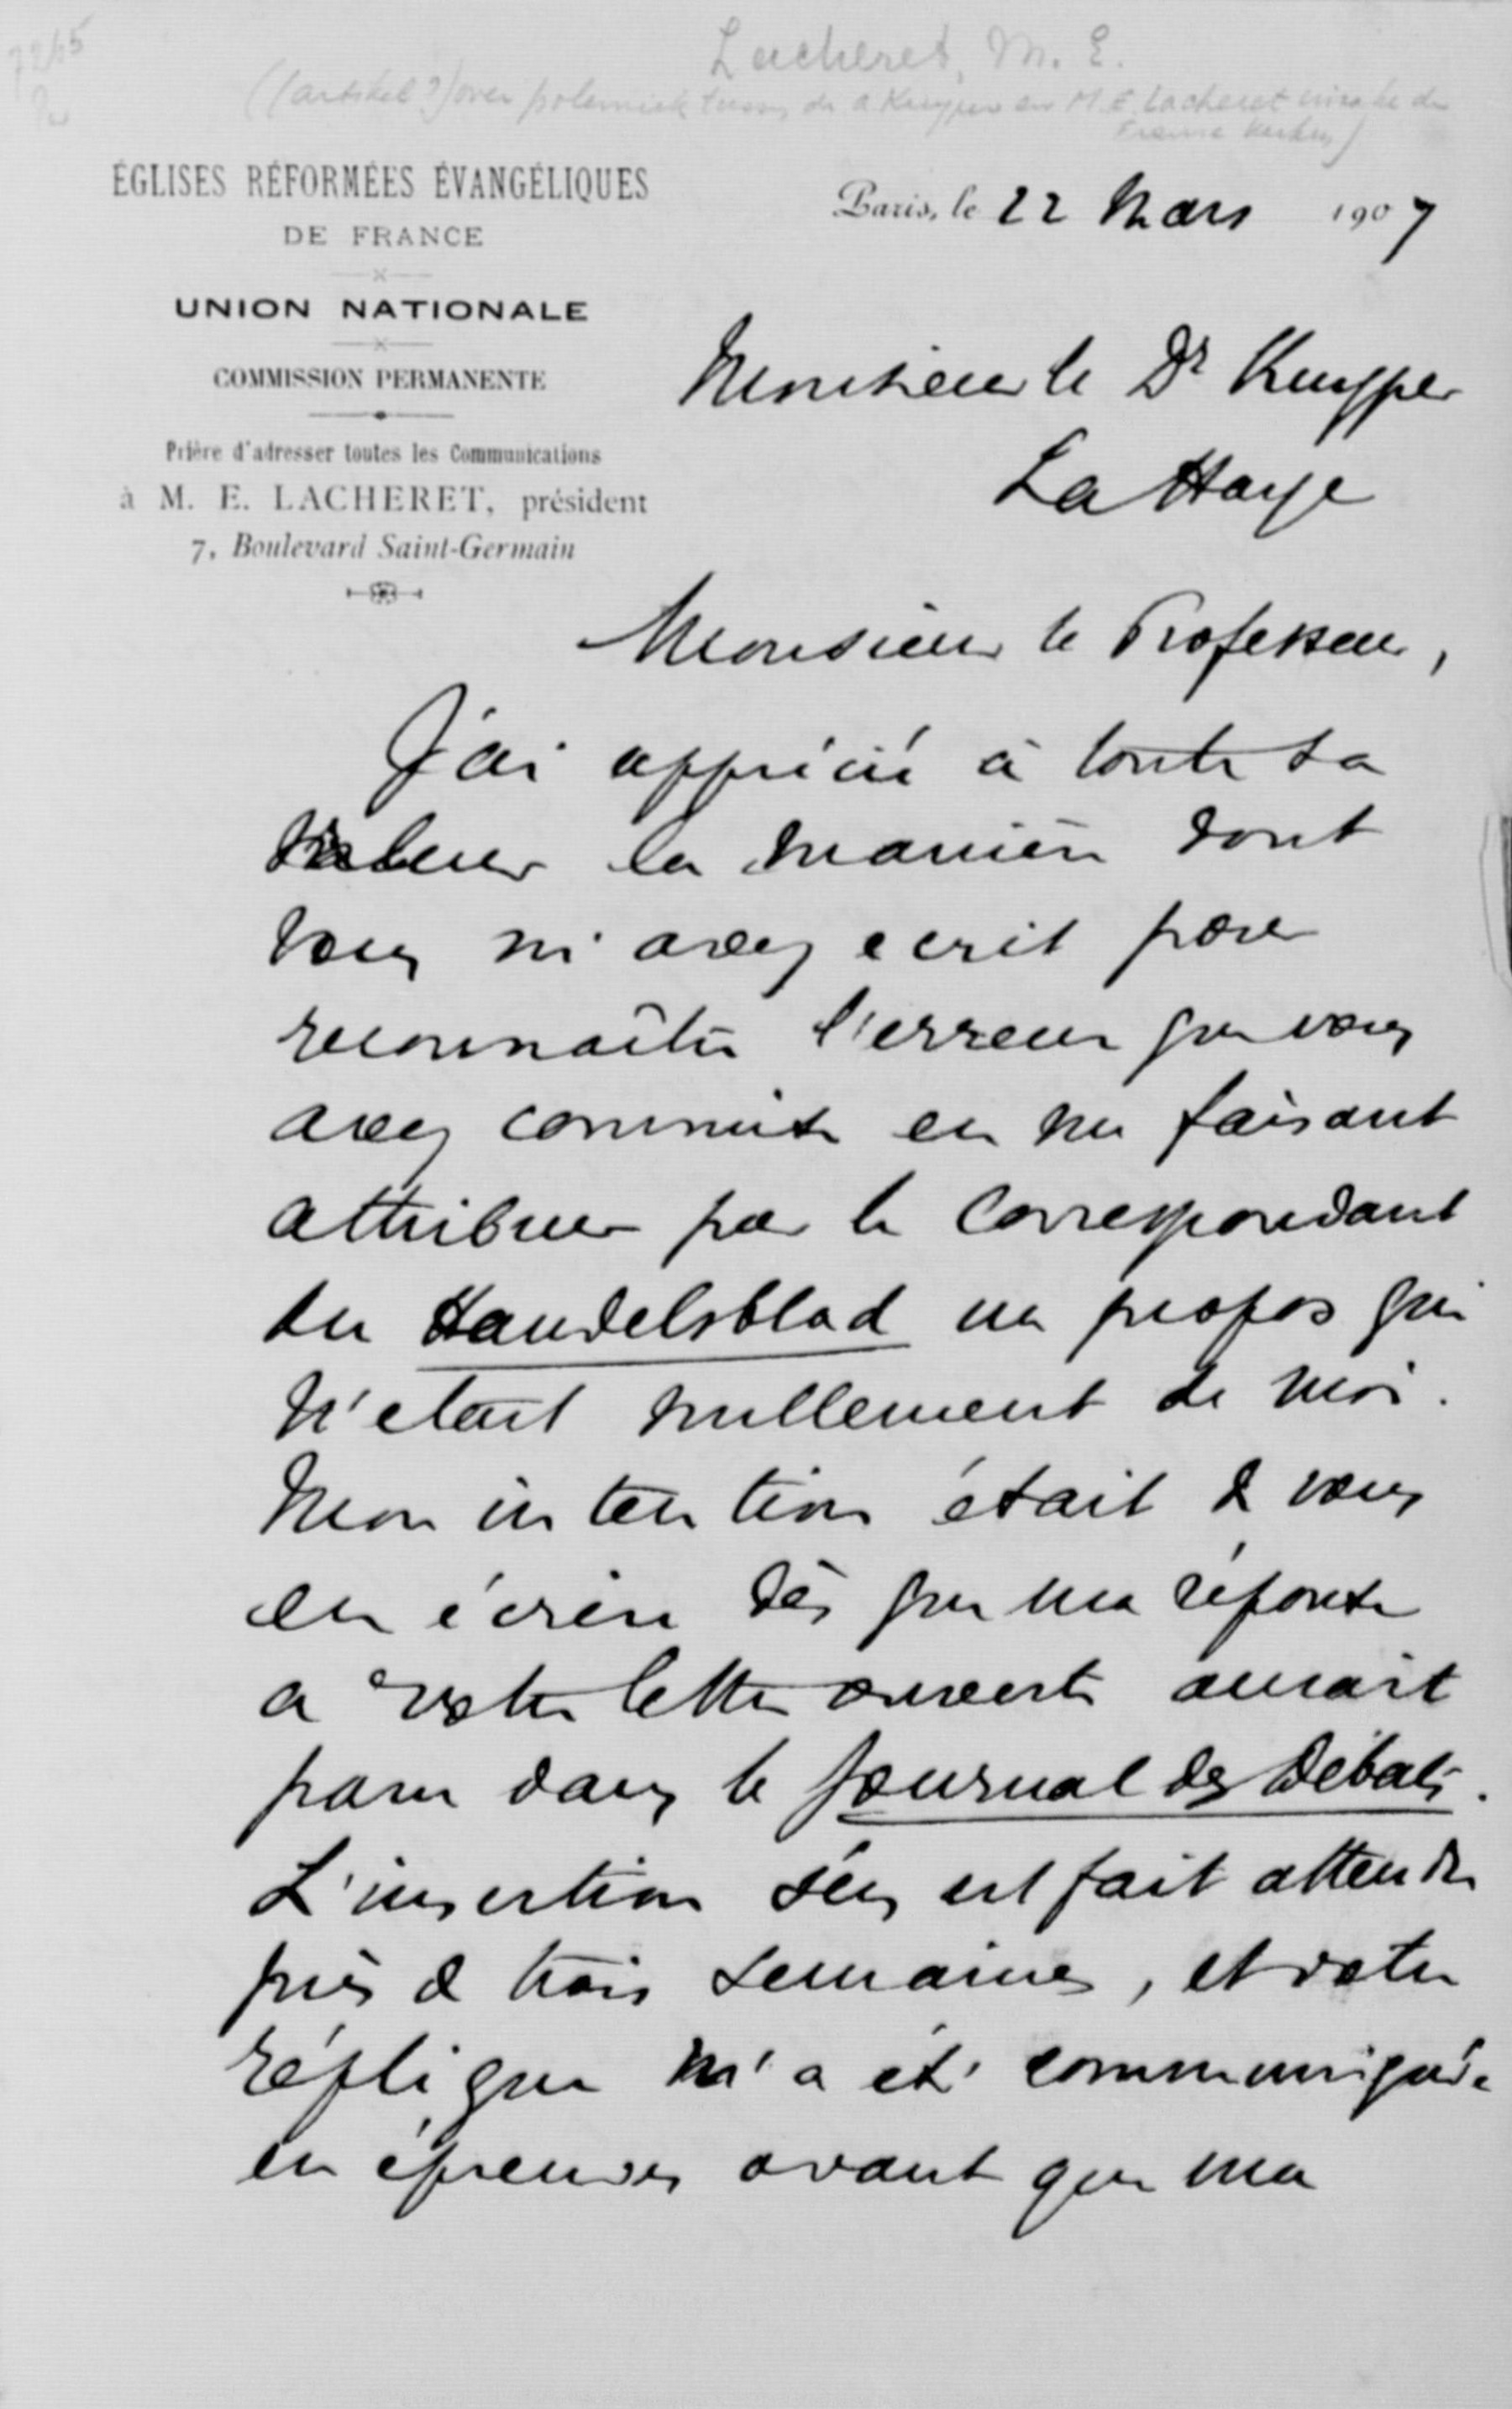 7265
Lacheret, M. E.
((artikel?) over polemiek tussen dr. A. Kuyper en M. E. Lacheret inzake de
Franse kerken)
ÉGLISES RÉFORMÉES ÉVANGÉLIQUES
DE FRANCE
UNION NATIONALE
COMMISSION PERMANENTE
Prière d'adresser toutes les Communications
à M. E. LACHERET, président
7, Boulevard Saint-Germain
Paris, le 22 Mars 1907
Monsieur le Dr Kuyper
La Haye
Monsieur le Professeur,
J'ai apprécié à toute sa
valeur la manière dont
vous m'avez ecrit pour
reconnaître l'erreur que vous
avez commise en me faisant
attribuer par le Correspondant
du Handelsblad un propos qui
n'etait nullement de moi.
Mon intention était de vous
en écrire dès que ma réponse
a votre lettre ouverte aurait
paru dans le Journal des Débats.
L'insertion s'en est fait attendre
près de trois semaines, et votre
réplique m'a été communiquée
en épreuves avant que ma